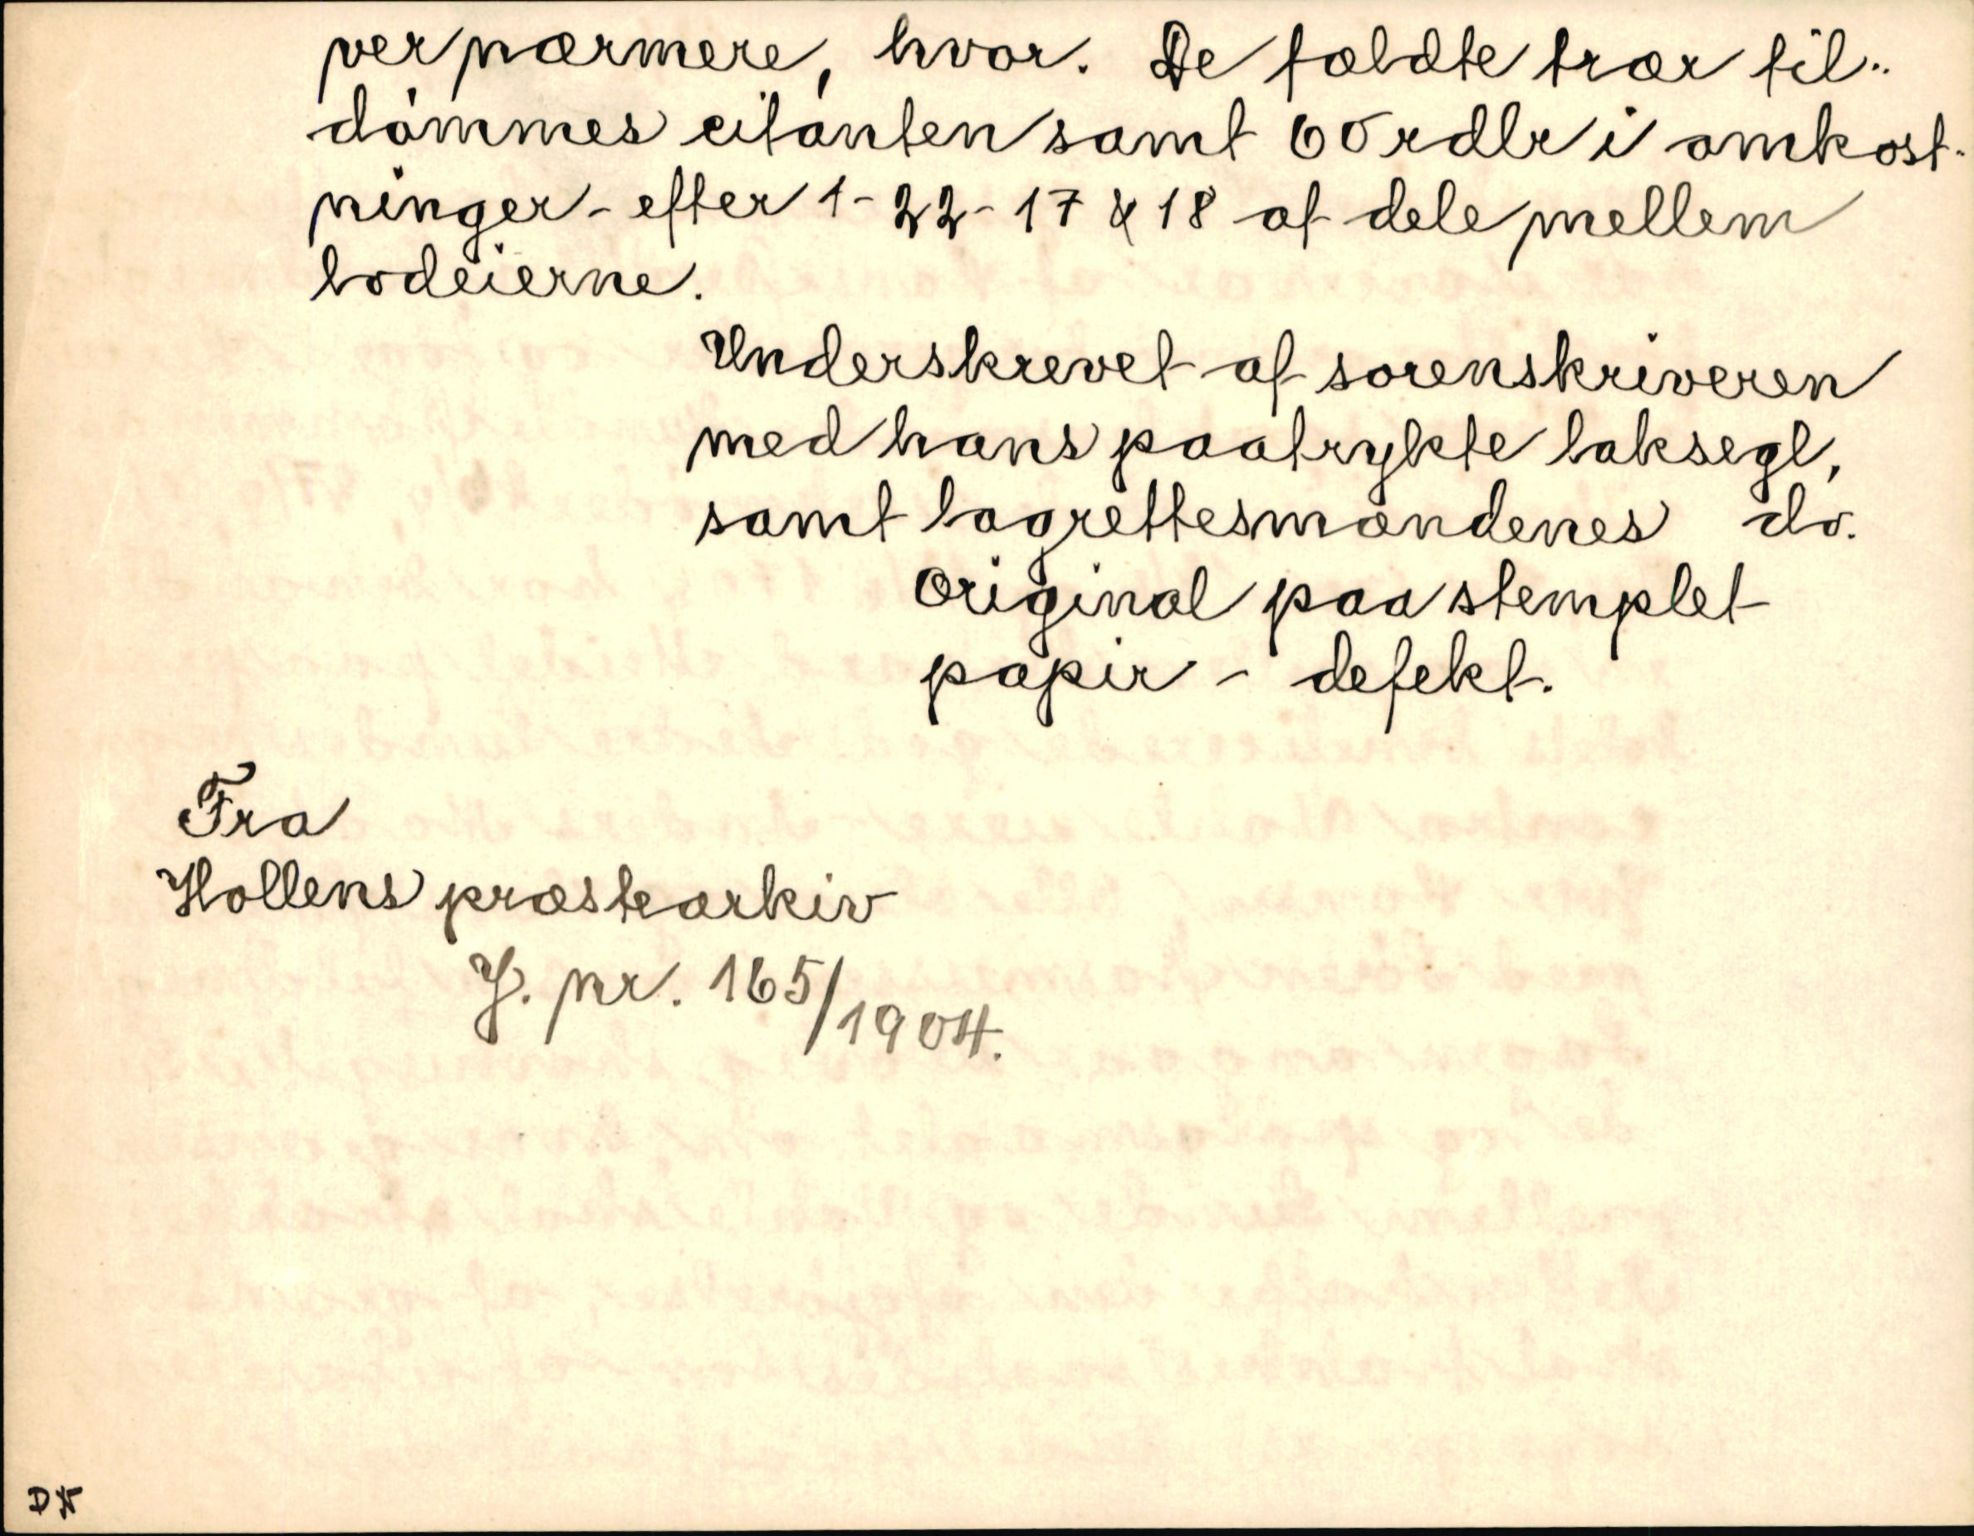 ver nærmere, hvor. De fældte trær til-
dömmes citanten samt 60 rdlr i omkost-
ninger - efter 1-22-17 & 18 at dele mellem
lodeierne.
Underskrevet af sorenskriveren
med hans paatrykte laksegl,
samt lagrettesmændenes do.
Original paa stemplet
papir - defekt.
Fra
Hollens præstearkiv
J. nr. 165/1904.